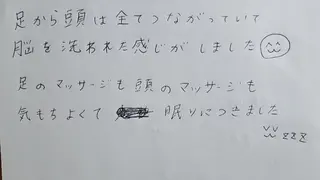 足から頭は全てつながっていて
脳を洗われた感じがしました
足のマッサージも頭のマッサージも
気もちよくて 眠りにつきました
zzz